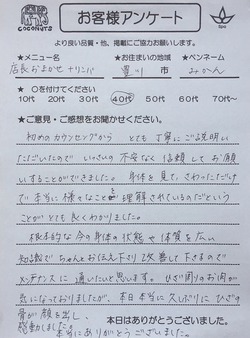 COCONUTS
お客様アンケート
Spa
より良い品質・他、掲載にご協力お願いします。
★メニュー名 ★お住まいの地域 ★ペンネーム
店長おまかせ 豊川 市 みかん
★ ○を付けてください
10代 20代 30代 40代 50代 60代 70代〜
★ご意見・ご感想をお聞かせください。
初めのカウンセリングから とても丁寧にご説明い
ただいたので いっさいの不安なく信頼してお願
いすることができました。身体を見て、さわっただけ
で本当に様々なことを理解されているのだという
ことがとても良くわかりました。
根本的な今の身体の状態や体質を広い
知識でちゃんとお伝え下さり改善して下さるので
メンテナンスに通いたいと思います。ひざ周りのお肉が
気になっておりましたが、本日本当に久しぶりにひざの
骨が顔を出し、
感動しました。
本当にありがとうございました。
本日はありがとうございました。